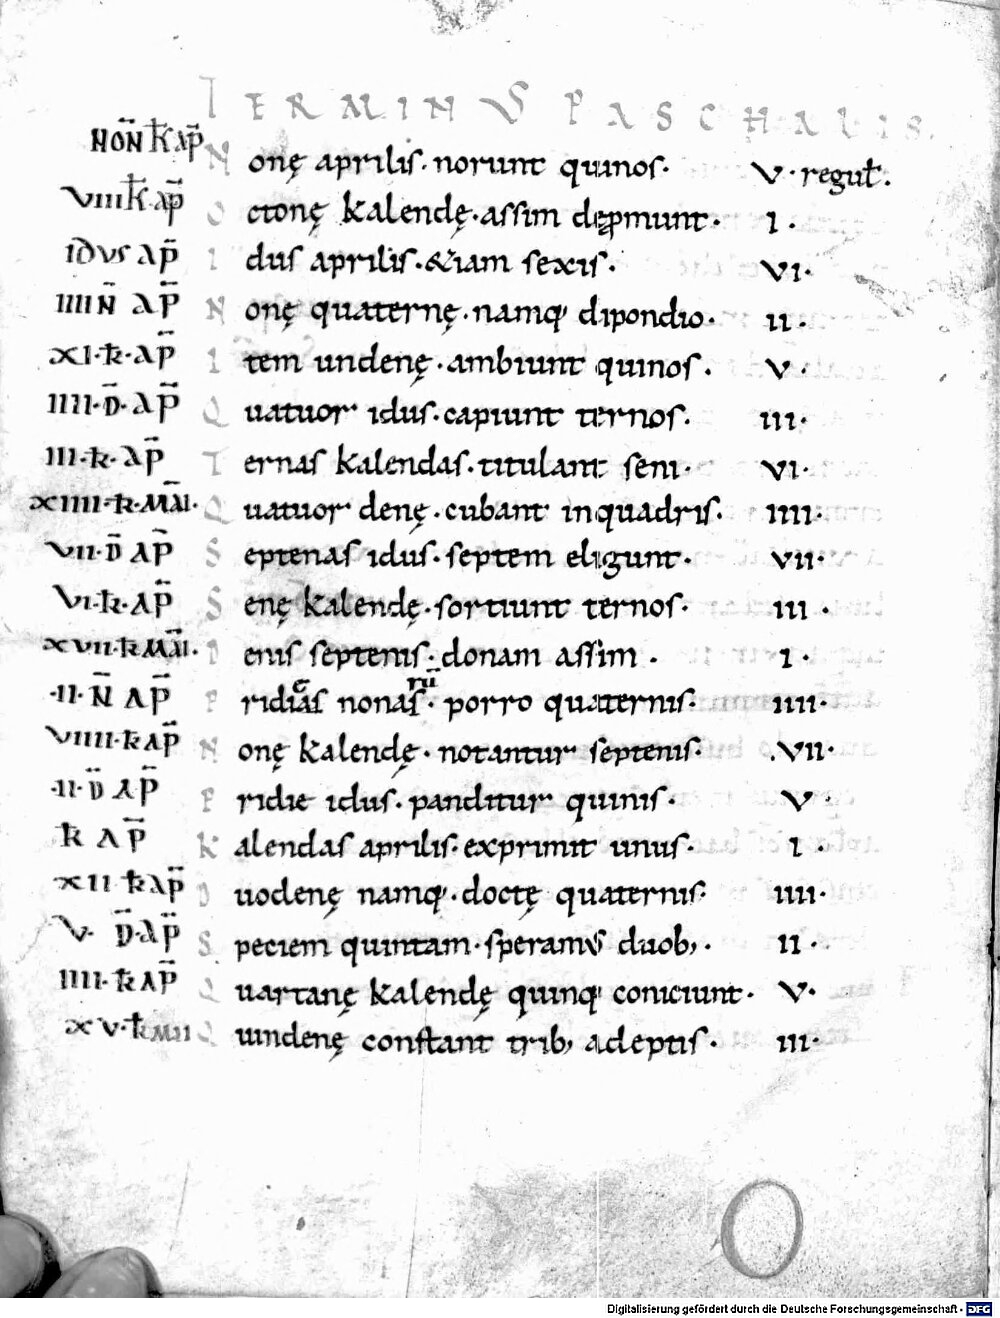 TERMINVS PASCHALIS.
NON̄ K̄ AP̄ Nonę aprilis· norunt quinos· V· reguł.
VIIII K̄ AP̄ Octonę kalendę· assim depmunt· I·
IDVS AP̄ Idus aprilis· &iam sexis· VI·
IIII N̄ AP̄ Nonę quaternę· namq; dipondio· II·
XI· K̄· AP̄ Item undenę· ambiunt quinos· V·
IIII· D̄· AP̄ Quatuor idus· capiunt ternos· III·
III· K̄· AP̄ Ternas kalendas· titulant seni· VI·
XIIII· K̄· MAI· Quatuor denę· cubant in quadris· IIII·
VII· D̄ AP̄ Septenas idus· septem eligunt· VII·
VI· K̄· AP̄ Senę kalendę· sortiunt ternos· III·
XVII· K̄ MAI· Denis septenis· donam assim· I·
·II· N̄ AP̄ Pridias nonas· porro quaternis· IIII·
VIIII· K̄ AP̄ Nonę kalendę· notantur septenis· VII·
·II· D̄ AP̄ Pridie idus· panditur quinis· V·
K̄ AP̄ Kalendas aprilis· exprimit unus· I·
XII K̄ AP̄ Duodenę namq;· doctę quaternis· IIII·
V· D̄· AP̄ Speciem quintam· speramus duob;· II·
IIII· K̄ AP̄ Quartanę kalendę quinq; coniciunt· V·
XV· K̄ MII Quindenę constant trib; adeptis· III·
O
Digitalisierung gefördert durch die Deutsche Forschungsgemeinschaft - DFG